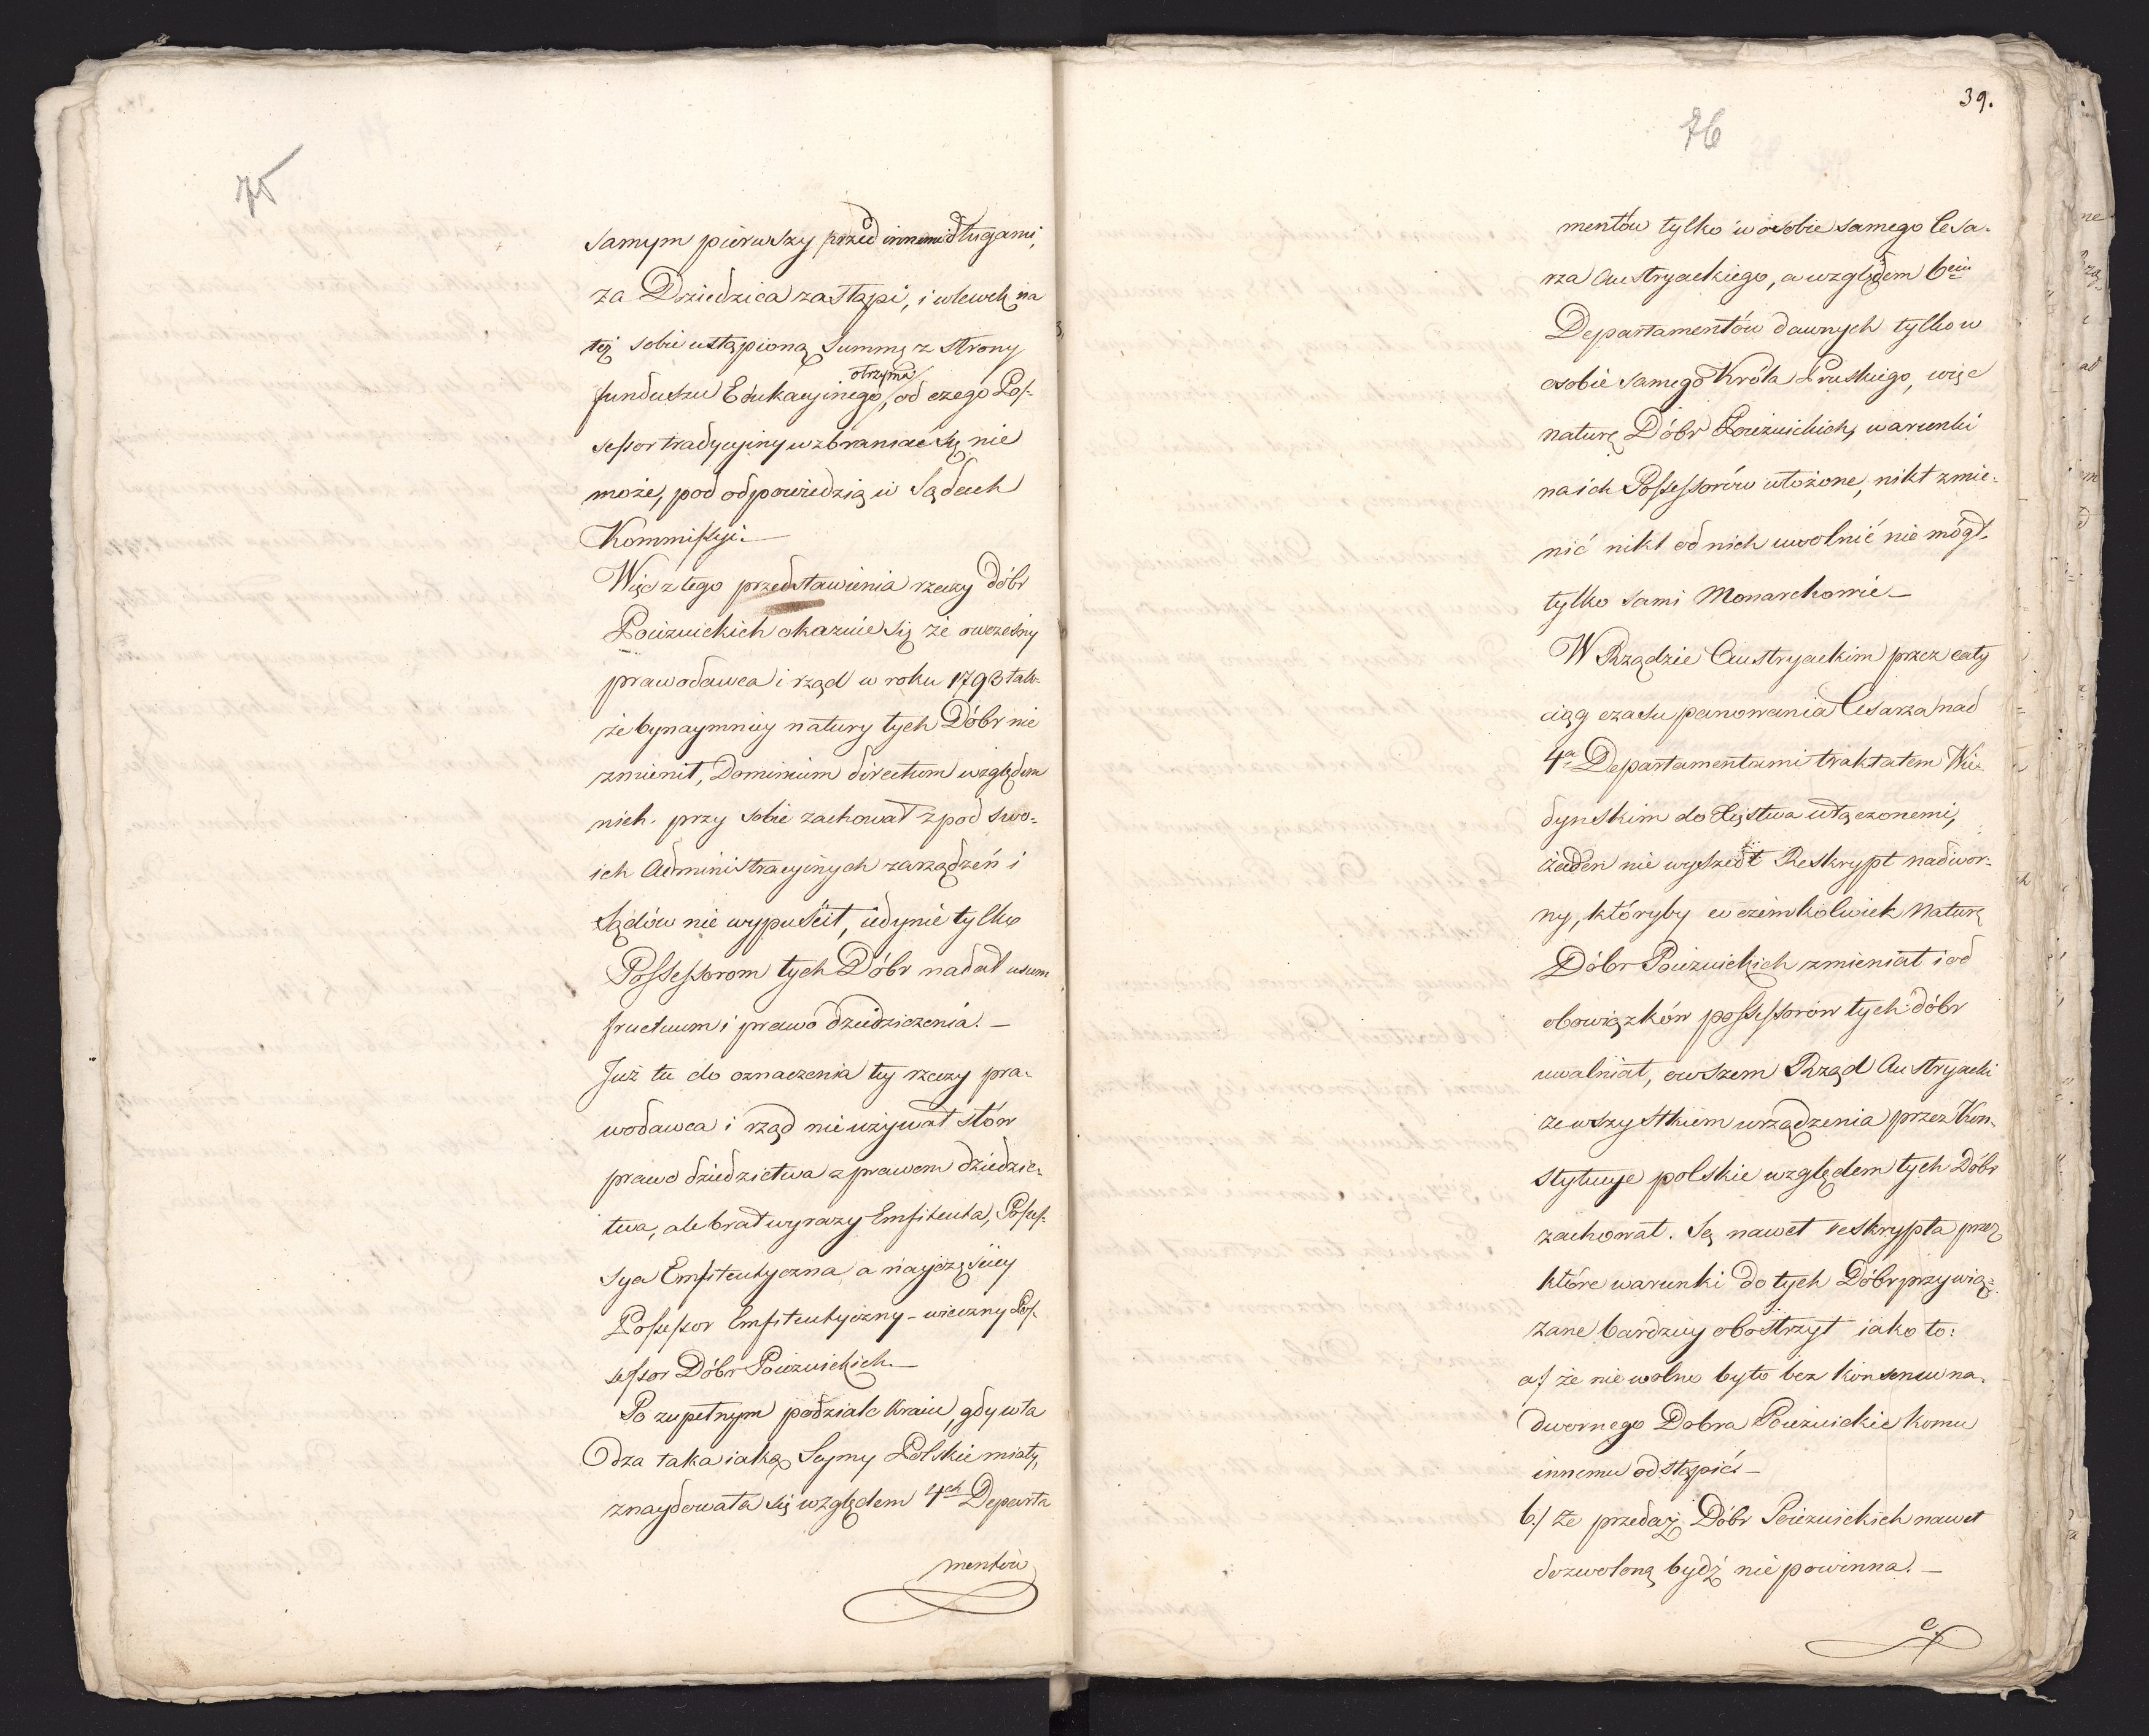 75
samym pierwszy przed innemi długami,
za Dziedzica zastąpi, i wlewek na
tęż sobie ustąpioną Summę z strony
otrzyma
funduszu Edukacyjnego, od czego Pos-
sessor tradycyiny wzbraniać się nie
może, pod odpowiedzią w Sądach
Kommissyi.—
Więc z tego przedstawienia rzeczy dóbr
Pojezuickich okazuie się że owczesny
prawodawca i rząd w roku 1793 tak-
że bynaymniey natury tych Dóbr nie
zmienił, Dominium directum względem
nich przy sobie zachował z pod swo-
ich Administracyinych zarządzeń i
Sądów nie wypuścił, iedynie tylko
Possessorom tych Dóbr nadał usum
fructuum i prawo dziedziczenia.—
Już tu do oznaczenia tey rzeczy pra-
wodawca i rząd nie używał słów
prawo dziedzictwa z prawem dziedzic-
twa, ale brał wyrazy Emfiteuta, Posses-
sya Emfiteutyczna a nayczęściey
Possessor Emfiteutyczny – wieczny Pos-
sessor Dóbr Pojezuickich.—
Po zupełnym podziale kraiu, gdy wła
dza taka iaką Seymy Polskie miały,
znaydowała się względem 4ch Departa
mentów
39.
76
mentów tylko w osobie samego Cesa-
rza Austryackiego, a względem 6ciu
Departamentów dawnych tylko w
osobie samego Króla Pruskiego, więc
naturę Dóbr Pojezuickich, warunki
na ich Possessorów włożone, nikt zmie-
nić nikt od nich uwolnić nie mógł,
tylko sami Monarchowie.—
W Rządzie Austryackim przez cały
ciąg czasu panowania Cesarza nad
4a Departamentami traktatem Wie-
dynskim do Xięstwa włączonemi,
żaden nie wyszedł Reskrypt nadwor-
ny, któryby w czémkolwiek Naturę
Dóbr Pojezuickich zmieniał i od
obowiązków possessorów tych dóbr
uwalniał, owszem Rząd Austryacki
ze wszystkiem urządzenia przez Kon-
stytucye polskie względem tych Dóbr
zachował. Są nawet reskrypta przez
które warunki do tych Dóbr przywią-
zane bardziey obostrzył iako to:
a/ że nie wolno było bez konsensu na-
dwornego Dobra Pojezuickie komu
innemu odstąpić.—
b./ że przedaż Dóbr Pojezuickich nawet
dozwoloną bydź nie powinna.—
c/